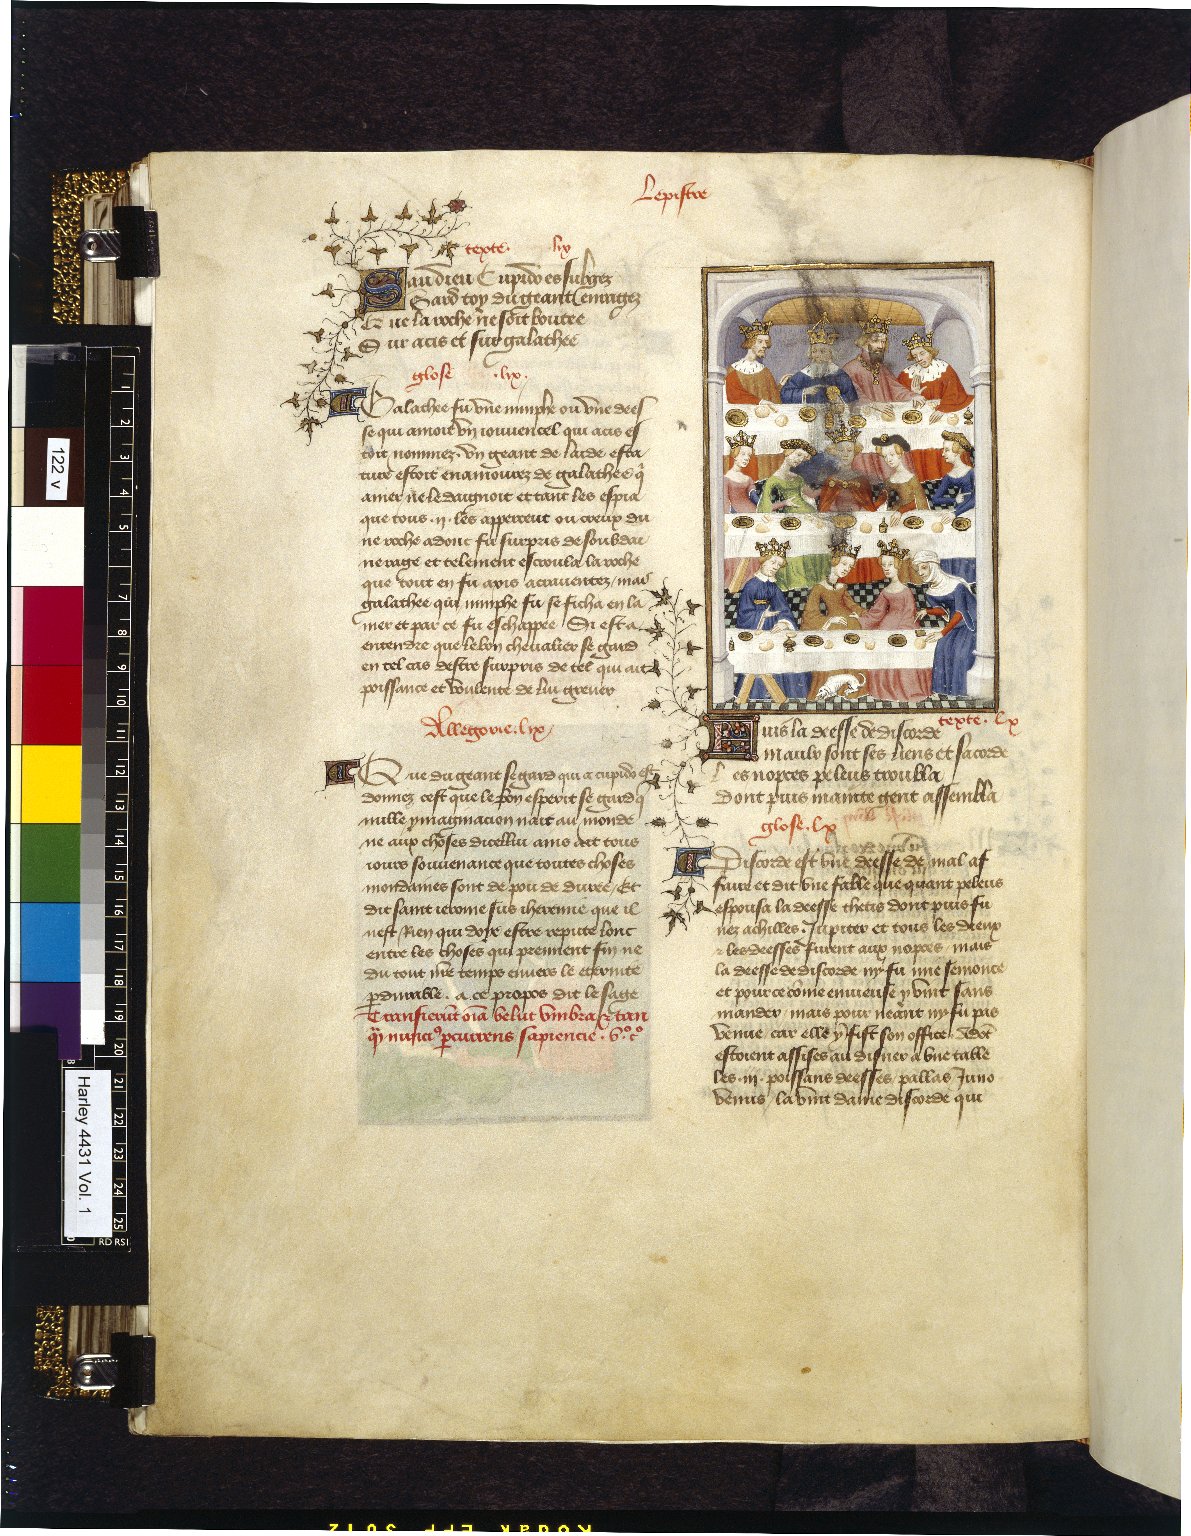 Lepistre
texte. lix
Sau dieu Cupido es subgez
Gard toy du geant enragez
Que la roche ne soit boutee
Sur acis et sur galathee
glose .lix.
Galathee fu vne nimphe ou vne dees
se qui amoit vn iouuencel qui acis es
toit nommez. vn geant de laide esta
ture estoit enamourez de galathee q̃
amer ne le daignoit et tant les espia
que tous .ij. les apperceut ou creux du
ne roche adonc fu surpris de soubdai
ne rage et telement escroula la roche
que tout en fu acis acrauentez / mais
galathee qui nimphe fu se ficha en la
mer et par ce fu eschappee Si est a
entendre que le bon cheualier se gard
en tel cas destre surpris de tel qui ait
poissance et voulente de lui greuer
Allegorie .lix
Que du geant se gard qui a cupido est
donnez cest que le bon esperit se gard q̃
nulle ymaginacion nait au monde
ne aux choses dicellui ains ait tous
iours souuenance que toutes choses
mondaines sont de pou de duree / Et
dit saint ierome sus iheremie que il
nest Rien qui doye estre repute lonc
entre les choses qui prennent fin ne
du tout nr̃e temps enuers le eternite
ꝑdurable. a ce propos dit le sage
Transierũt oĩa velut vmbra et tan
q̃ nunciꝰ ꝑcurrens sapiencie. v.ᵒ cᵒ
texte. lx
Fuis la deesse de discorde
Maulx sont ses liens et sa corde
Les nopces peleus troubla
Dont puis mainte gent assembla
glose. lx
Discorde est vne deesse de mal af
faire et dit vne fable que quant peleus
espousa la deesse thetis dont puis fu
nez achilles. Jupiter et tous les dieux
et les deesses furent aux nopces / mais
la deesse de discorde ny fu mie semonce
et pource cõme enuieuse y vint sans
mander / mais pour neant ny fu pas
venue / car elle y fist son office. Dõt
estoient assises au disner a vne table
les .iij. poissans deesses / pallas Juno
venus / la vint dame discorde qui
122 v
Harley 4431 Vol. 1